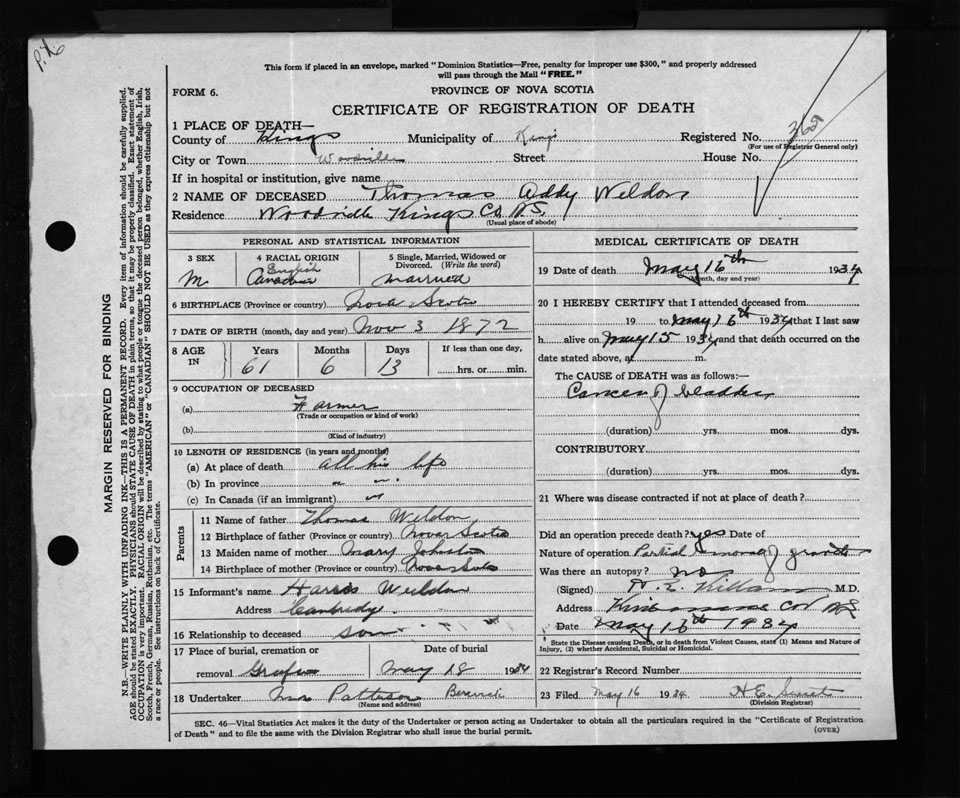 This form if placed in an envelope, marked "Dominion Statistics—Free, penalty for improper use $300," and properly addressed
will pass through the Mail "FREE."
FORM 6.
PROVINCE OF NOVA SCOTIA
CERTIFICATE OF REGISTRATION OF DEATH
1 PLACE OF DEATH—
County of Kings Municipality of Kings Registered No.
(For use of Registrar General only)
City or Town Woodville Street House No.
If in hospital or institution, give name
2 NAME OF DECEASED Thomas Addy Weldon
Residence Woodville Kings Co. N.S.
(Usual place of abode)
MARGIN RESERVED FOR BINDING
N.B.—WRITE PLAINLY WITH UNFADING INK—THIS IS A PERMANENT RECORD. Every item of information should be carefully supplied.
AGE should be stated EXACTLY. PHYSICIANS should STATE CAUSE OF DEATH in plain terms, so that it may be properly classified. Exact statement of
OCCUPATION is very important. RACIAL ORIGIN will be described by stating to what people or tongue the deceased person belonged, whether English, Irish,
Scotch, French, German, Russian, Ruthenian, etc. The terms "AMERICAN" or "CANADIAN" SHOULD NOT BE USED as they express citizenship but not
a race or people. See instructions on back of Certificate.
PERSONAL AND STATISTICAL INFORMATION
3 SEX
M.
4 RACIAL ORIGIN
English
Canadian
5 Single, Married, Widowed or
Divorced. (Write the word)
married
6 BIRTHPLACE (Province or country) Nova Scotia
7 DATE OF BIRTH (month, day and year) Nov 3 1872
8 AGE
IN
Years Months Days If less than one day,
61 6 13 hrs. or min.
9 OCCUPATION OF DECEASED
(a) Farmer
(Trade or occupation or kind of work)
(b)
(Kind of industry)
10 LENGTH OF RESIDENCE (in years and months)
(a) At place of death all his life
(b) In province " "
(c) In Canada (if an immigrant) "
Parents
11 Name of father Thomas Weldon
12 Birthplace of father (Province or country) Nova Scotia
13 Maiden name of mother Mary Johnston
14 Birthplace of mother (Province or country) Nova Scotia
15 Informant's name Weldon
Address Cambridge.
16 Relationship to deceased son
17 Place of burial, cremation or Date of burial
removal Grafton May 18 1934
18 Undertaker Patterson Berwick
(Name and address)
MEDICAL CERTIFICATE OF DEATH
19 Date of death May 16th 1934
(Month, day and year)
20 I HEREBY CERTIFY that I attended deceased from
19 to May 16th 1934 that I last saw
h alive on May 15 1934 and that death occurred on the
date stated above, at m.
The CAUSE of DEATH was as follows:—
Cancer of bladder
(duration) yrs. mos. dys.
CONTRIBUTORY
(duration) yrs. mos. dys.
21 Where was disease contracted if not at place of death?
Did an operation precede death? yes Date of
Nature of operation Partial removal of growth
Was there an autopsy? no
(Signed) Killam M.D.
Address Co. N.S.
Date May 16th 1934
* State the Disease causing Death, or in death from Violent Causes, state (1) Means and Nature of
Injury, (2) whether Accidental, Suicidal or Homicidal.
22 Registrar's Record Number
23 Filed May 16 1934 H.E.
(Division Registrar)
SEC. 46—Vital Statistics Act makes it the duty of the Undertaker or person acting as Undertaker to obtain all the particulars required in the "Certificate of Registration
of Death" and to file the same with the Division Registrar who shall issue the burial permit. (OVER)